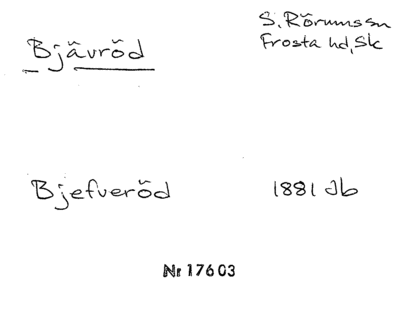 Bjävröd
S. Rörums sn
Frosta hd, Sk
Bjefveröd
1881 Jb
Nr 17603